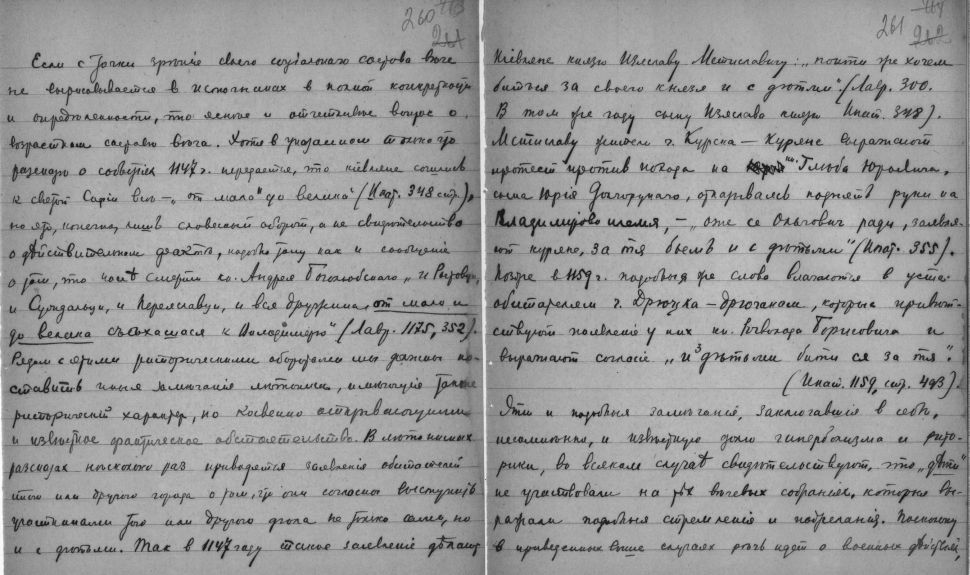 260
Если с точки зрѣнія своего соціальнаго состава вѣче
не вырисовывается в источниках в полной конкретности
и опредѣленности, то яснѣе и отчетливѣе вопрос о
возрастном составѣ вѣча. Хотя в указанном
разсказѣ о событіях 1147 г. передается, что кіевляне сошлись
к святой Софіи вси – „от мала до велика" (Ипат. 348 стр.),
но это, конечно, лишь словесный оборот, а не свидѣтельство
о дѣйствительном фактѣ, подобно тому как и сообщеніе
о том, что послѣ смерти кн. Андрея Боголюбскаго „и Ростовци,
и Суждальци, и Переяславци, и вся дружина, от мала и
до велика съѣхашася к Володимерю" (Лавр. 1175, 352).
Рядом с этими риторическими оборотами мы должны по-
ставить иныя замѣчанія лѣтописи, имѣющія также
риторическій характер, но косвенно открывающія
и извѣстное фактическое обстоятельство. В лѣтописных
разсказах нѣсколько раз приводятся заявленія обитателей
того или другого города о том, что они согласны выступить
участниками того или другого дѣла не только сами, но
и с дѣтьми. Так в 1147 году такое заявленіе дѣлают
261
Кіевляне князю Изяславу Мстиславичу: „поити же хочем
биться за своего князя и с дѣтми" (Лавр. 300.
В том же году сыну Изяслава князю Ипат. 348).
Мстиславу жители г. Курска – Куряне выражают
протест против похода на Глѣба Юрьевича,
сына Юрія Долгорукаго, отказываясь поднять руки на
Владимирово племя, – „оже се Ольгович ради, заявля-
ют куряне, за тя бьемъ и с дѣтьми" (Ипат. 355).
Позже в 1159 г. подобныя же слова влагаются в уста
обитателям г. Друцка – дрючанам, которые привѣт-
ствуют появленіе у них кн. Рогволода Борисовича и
выражают согласіе „и з дѣтьми битися за тя".
(Ипат. 1159, стр. 493).
Эти и подобныя замѣчанія, заключавшіе в себѣ,
несомнѣнно, и извѣстную долю гиперболизма и рито-
рики, во всяком случаѣ свидѣтельствуют, что „дѣти"
не участвовали на тѣх вѣчевых собраніях, которыя вы-
ражали подобныя стремленія и пожеланія. Поскольку
в приведенных выше случаях рѣчь идет о военных дѣйствіях,